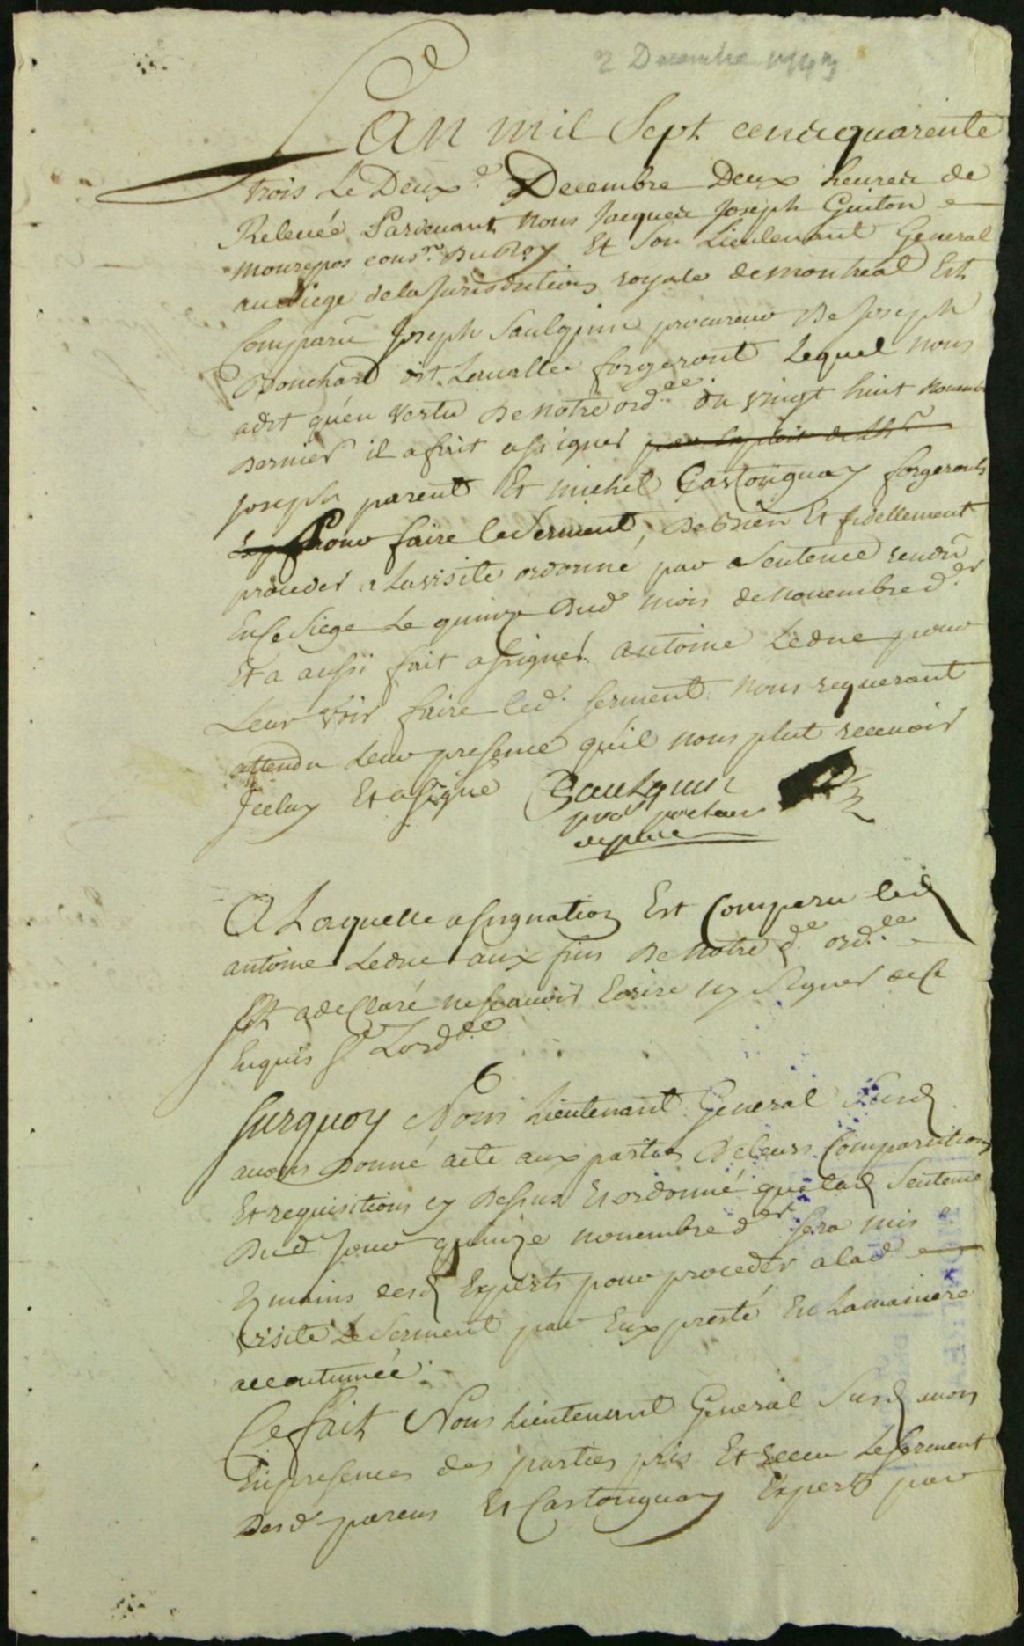 2 Decembre 1743
L'an mil Sept cent quarente
trois Le Deuxe. Decembre Deux heures de
Relevée Pardevant Nous Jacques Joseph Guiton
monrepos consr. Du Roy Et Son Lieutenant General
au Siege de la Jurisdiction royale de montreal Est
Comparu Joseph Saulquin procureur De Joseph
Bouchard dit Lavallée forgeront Lequel nous
a dit qu'en vertu De notre ordce. du vingt huit Novembre
Dernier il a fait assigner
Joseph parent Et michel Castonguay forgerons
pour faire le Serment, De bien Et fidellement
proceder a La visite ordonné par Sentence rendu
En ce Siege Le quinze Dud. mois de Novembre der
Et a aussi fait assigner antoine Leduc pour
Leur voir faire led. serment. Nous requerant
attendu Leur presence qu'il nous plut recevoir
Iceluy Et a signé Saulquin
A Laquelle assignation Est Comparu led
antoine Leduc aux fins De Notre de. ordce.
Et a declaré ne scavoir Ecrire ny Signer de ce
Enquis st. Lordce
Surquoy Nous Lieutenant General Susd
avons Donné acte aux parties De leurs Comparutions
Et requisitions cy Dessus Et ordonné que lad Sentence
Dud Jour quinze novembre der sera mis
Es mains desd Experts pour proceder a lad
visite Le Serment par Eux presté En La maniere
accoutumée.
Ce fait Nous Lieutenant General Susd avons
En presences des parties pris Et receu Le serment
Desd. parens Et Castonguay Experts par